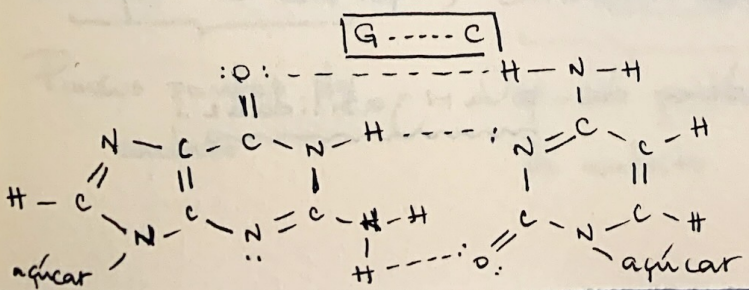 G ----- C
:O: - - - - - - - H - N - H
N - C - C - N - H - - - - : N = C - C - H
H - C = N - C = C - N = C - N - H C - N - C - H
açúcar H - - - - - O: açúcar